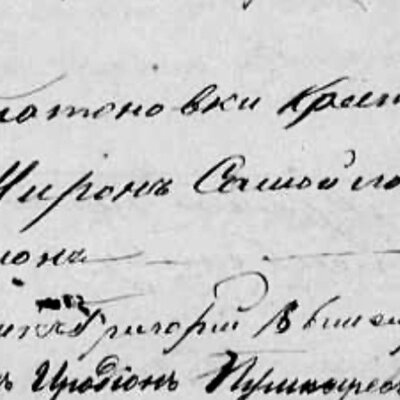 латоновки крест
Мирон Самойло
иона
Григорий Вышем
ъ Иродіонъ Пушкарев